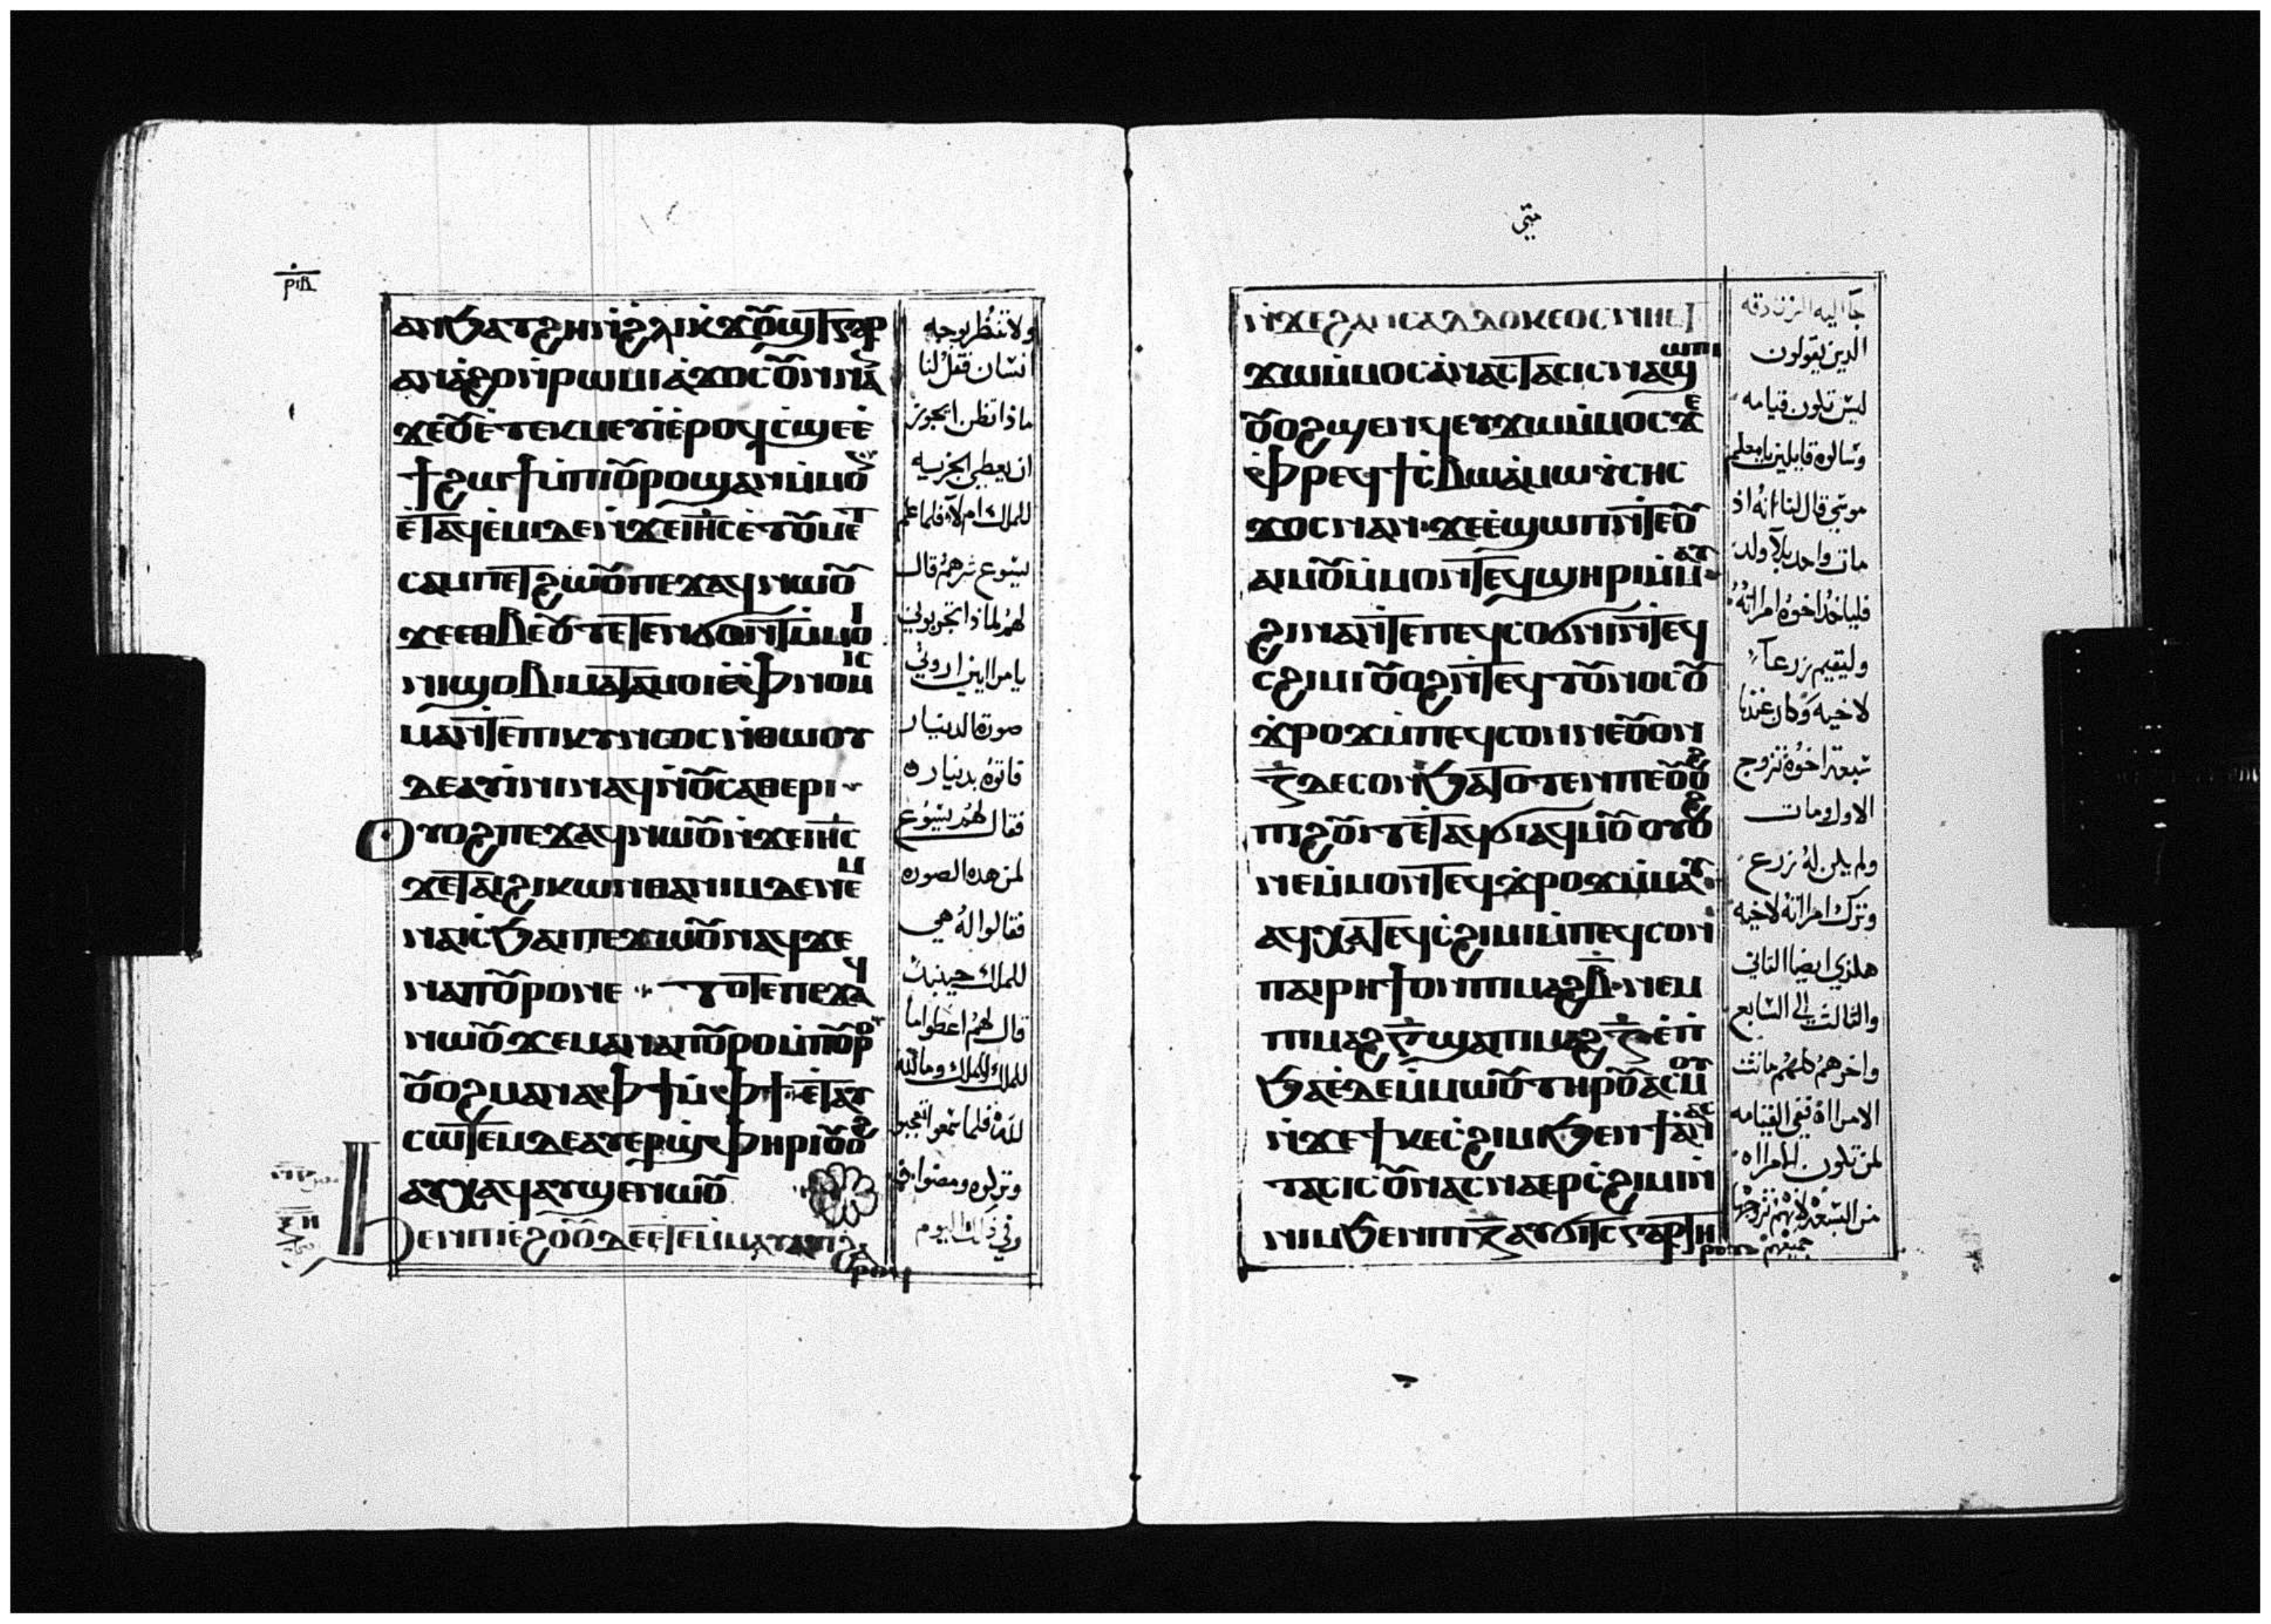 ⲣⲓⲃ
ⲁⲛϧⲁⲧϩⲏⲛ̇ϩ̇ⲗⲓⲕ̇ϫⲟⲩϣⲧⲅⲁⲣ
ⲁⲛⲉ̇ϩⲟⲛ̇ⲣⲱⲙⲓⲁ̇ϫⲟⲥⲟⲩⲛⲛⲁⲛ
ϫⲉⲟⲩⲉ̇ⲧⲉⲕⲙⲉⲩⲓⲉ̇ⲣⲟϥⲥ̇ϣⲉⲉ̇
ϯϩⲱϯⲙ̇ⲡⲓⲟⲩⲣⲟϣⲁⲛⲙ̇ⲙⲟⲛ
ⲉ̇ⲧⲁϥⲉ̇ⲙⲓⲇⲉⲛ̇ϫⲉⲓⲏⲥⲉ̇ⲧⲟⲩⲙⲉⲧ
ⲥⲁⲙⲡⲉⲧϩⲱⲟⲩⲡⲉϫⲁϥⲛⲱⲟⲩ
ϫⲉⲉⲑⲃⲉⲟⲩⲧⲉⲧⲉⲛϭⲟⲛⲧⲙ̇ⲙⲟⲓ
ⲛⲓϣⲟⲃⲓⲙⲁⲧⲁⲙⲟⲓⲉ̇ⲫⲛⲟⲙⲓⲥ
ⲙⲁⲛⲧⲉⲡⲓⲕⲩⲛⲥⲟⲥⲛ̇ⲑⲱⲟⲩ
ⲇⲉⲁⲩⲓ̇ⲛⲓⲛⲁϥⲛ̇ⲟⲩⲥⲁⲑⲉⲣⲓ
ⲟⲩⲟϩⲡⲉϫⲁϥⲛⲱⲟⲩⲛ̇ϫⲉⲓⲏⲥ
ϫⲉⲧⲁⲓϩⲓⲕⲱⲛⲑⲁⲛⲓⲙⲇⲉⲛⲉⲙ
ⲛⲁⲓⲥ̇ϧⲁⲓⲡⲉϫⲱⲟⲩⲛⲁϥϫⲉ
ⲛⲁⲡⲟⲩⲣⲟⲛⲉ ⲧⲟⲧⲉⲡⲉϫⲁϥ
ⲛⲱⲟⲩϫⲉⲙⲁⲛⲁⲡⲟⲩⲣⲟⲙ̇ⲡⲟⲩⲣⲟ
ⲟⲩⲟϩⲙⲁⲛⲁⲫϯⲙ̇ⲫϯ·ⲉ̇ⲧⲁⲩ
ⲥⲱⲧⲉⲙⲇⲉⲁⲩⲉⲣϣ̇ⲫⲏⲣⲓⲟⲩⲟϩ
ⲁⲩⲭⲁϥⲁⲩϣⲉⲛⲱⲟⲩ
ϧⲉⲛⲡⲓⲉ̇ϩⲟⲟⲩⲇⲉⲉ̇ⲧⲉⲙ̇ⲙⲁⲩⲁⲩⲓ̇ϩⲁ
ⲣⲟϥ
ولا تنظر بوجه
انسان فقل لنا
ماذا تظن ايجوز
ان يعطي الجزيه
للملك ام لا فلما علم
يسوع شرهم قال
لهم لماذا تجربوني
يا مراايين اروني
صورة الدينار
فاتوه بدينار
فقال لهم يسوع
لمن هذه الصوره
فقالوا له هي
للملك حينيذ
قال لهم اعطوا ما
للملك للملك وما لله
لله فلما سمعوا تعجبوا
وتركوه ومضوا
وفي ذلك اليوم
متى
ⲛ̇ϫⲉϩⲁⲛⲥⲁⲇⲇⲟⲕⲉⲟⲥⲛⲏⲉⲧ
ϫⲱⲙ̇ⲙⲟⲥⲁ̇ⲛⲁⲥⲧⲁⲥⲓⲥⲛⲁϣⲱⲡⲓ
ⲟⲩⲟϩϣⲉⲛϥⲉⲩϫⲱⲙ̇ⲙⲟⲥϫⲉ
ⲫⲣⲉϥϯⲥ̇ⲃⲱⲁ̇ⲙⲱⲩⲥⲏⲥ
ϫⲟⲥⲛⲁⲛ·ϫⲉⲉ̇ϣⲱⲡⲛ̇ⲧⲉⲟⲩ
ⲁⲓⲙⲟⲩⲙ̇ⲙⲟⲛⲧⲉϥϣⲏⲣⲓⲙ̇ⲙⲁⲩ
ϩⲓⲛⲁⲛ̇ⲧⲉⲡⲉϥⲥⲟⲛϭⲓⲛ̇ⲧⲉϥ
ⲥϩⲓⲙⲓⲟⲩⲟϩⲛ̇ⲧⲉϥⲧⲟⲩⲛⲟⲥⲟⲩ
ϫ̇ⲣⲟϫⲙ̇ⲡⲉϥⲥⲟⲛⲛⲉⲟⲩⲟⲛ
ⲍ̅ⲇⲉⲥⲟⲛϧⲁⲧⲟⲧⲉⲛⲡⲉⲟⲩⲟϩ
ⲡⲓϩⲟⲩⲓⲧⲉ̇ⲧⲁϥϭⲓⲁϥⲙⲟⲩⲟⲩⲟϩ
ⲛⲉⲙ̇ⲙⲟⲛⲧⲉϥϫ̇ⲣⲟϫⲙ̇ⲙⲁⲩ
ⲁϥⲭⲁⲧⲉϥⲥ̇ϩⲓⲙⲓⲙ̇ⲡⲉϥⲥⲟⲛ
ⲡⲁⲓⲣⲏϯⲟⲛⲡⲓⲙⲁϩⲃ̅·ⲛⲉⲙ
ⲡⲓⲙⲁϩⲅ̅ϣⲁⲡⲓⲙⲁϩⲍ̅ⲉ̇ⲡ̇
ϧⲁⲉ̇ⲇⲉⲙ̇ⲙⲱⲟⲩⲧⲏⲣⲟⲩⲁⲥⲙⲟⲩ
ⲛ̇ϫⲉϯⲕⲉⲥ̇ϩⲓⲙⲓϧⲉⲛϯⲁ̇ⲛⲁⲥ
ⲧⲁⲥⲓⲥⲟⲩⲛⲁⲥⲛⲁⲉⲣⲥ̇ϩⲓⲙⲓⲛ̇
ⲛⲓⲙϧⲉⲛⲡⲓⲍ̅ⲁⲩϭⲓⲧⲥⲅⲁⲣⲧⲏ
ⲣⲟⲩ
جا اليه الزنادقه
الذين يقولون
ليس تكون قيامه
وسالوه قايلين يا معلم
موسي قال لنا انه اذ
مات واحد بلا ولد
فلياخد اخوه امراته
وليقيم زرعا
لاخيه وكان عندنا
سبعة اخوه تزوج
الاول ومات
ولم يكن له زرع
وترك امراته لاخيه
هكذي ايضا الثاني
والثالث الي السابع
واخرهم كلهم ماتت
الامراة ففي القيامه
لمن تكون امراه
من السبعة لانهم تزوجها
جميعهم